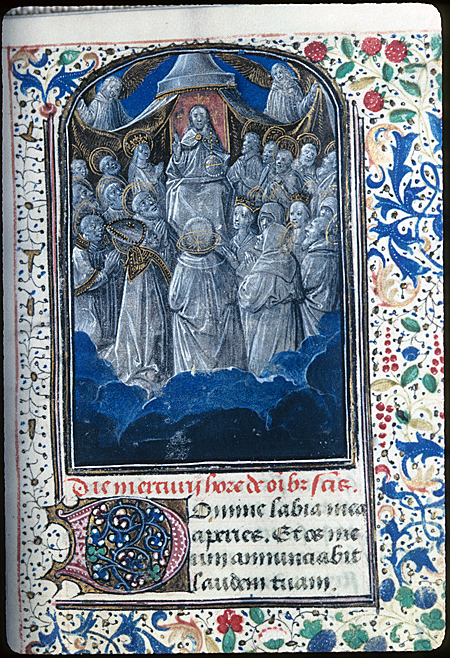 Die mercurij hore de oibz scis.
Domine labia mea
aperies. Et os me
um annunciabit
laudem tuam.